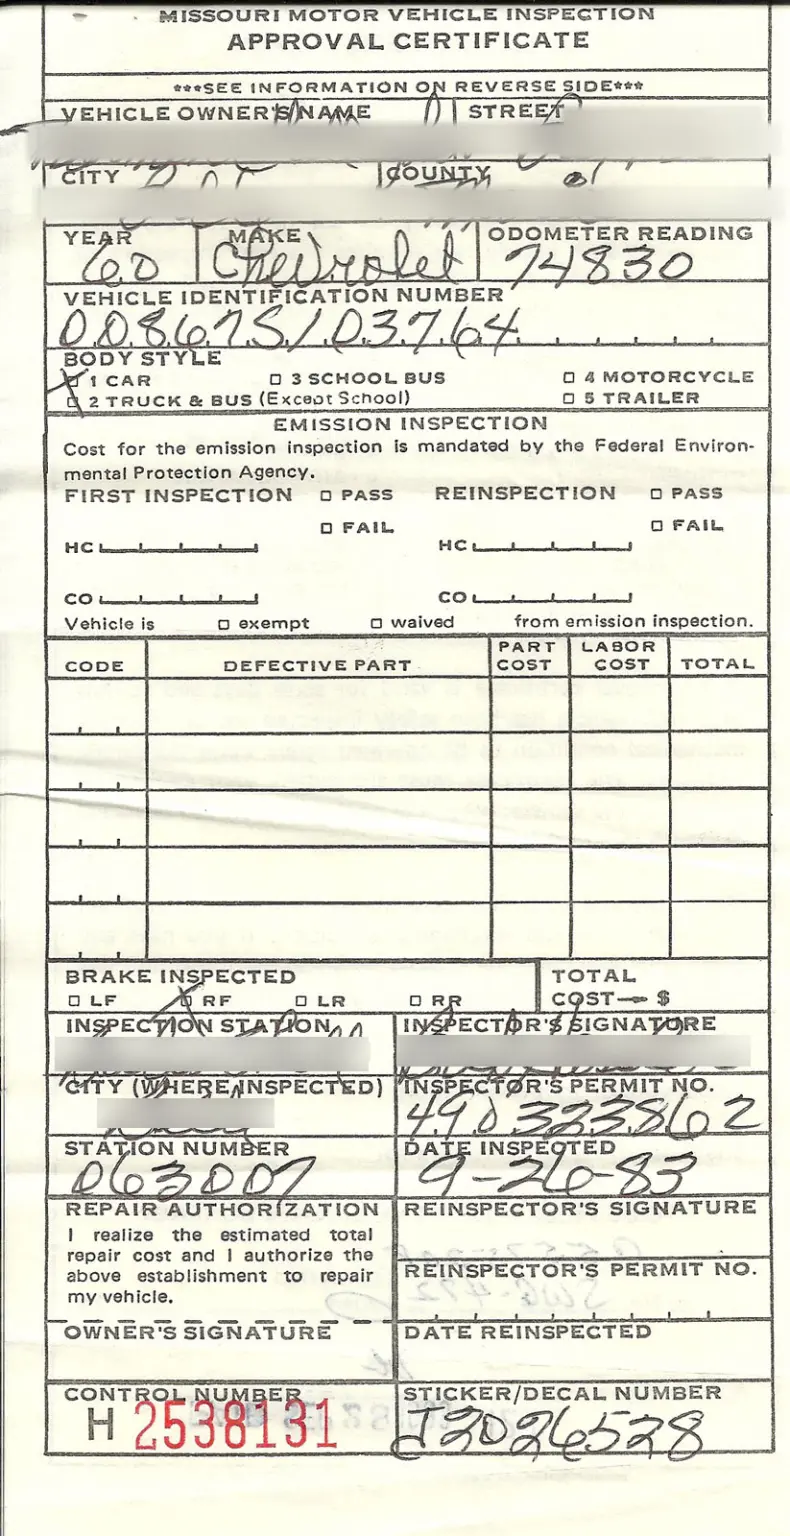 MISSOURI MOTOR VEHICLE INSPECTION
APPROVAL CERTIFICATE
***SEE INFORMATION ON REVERSE SIDE***
VEHICLE OWNER'S NAME STREET
CITY COUNTY
YEAR MAKE ODOMETER READING
60 Chevrolet 74830
VEHICLE IDENTIFICATION NUMBER
00867S103764
BODY STYLE
1 CAR 3 SCHOOL BUS 4 MOTORCYCLE
2 TRUCK & BUS (Except School) 5 TRAILER
EMISSION INSPECTION
Cost for the emission inspection is mandated by the Federal Environ-
mental Protection Agency.
FIRST INSPECTION PASS REINSPECTION PASS
FAIL FAIL
HC HC
CO CO
Vehicle is exempt waived from emission inspection.
CODE DEFECTIVE PART PART COST LABOR COST TOTAL
BRAKE INSPECTED TOTAL
LF RF LR RR COST $
INSPECTION STATION INSPECTOR'S SIGNATURE
CITY (WHERE INSPECTED) INSPECTOR'S PERMIT NO.
490323862
STATION NUMBER DATE INSPECTED
063007 9-26-83
REPAIR AUTHORIZATION REINSPECTOR'S SIGNATURE
I realize the estimated total
repair cost and I authorize the
above establishment to repair REINSPECTOR'S PERMIT NO.
my vehicle.
OWNER'S SIGNATURE DATE REINSPECTED
CONTROL NUMBER STICKER/DECAL NUMBER
H 2538131 J2026528